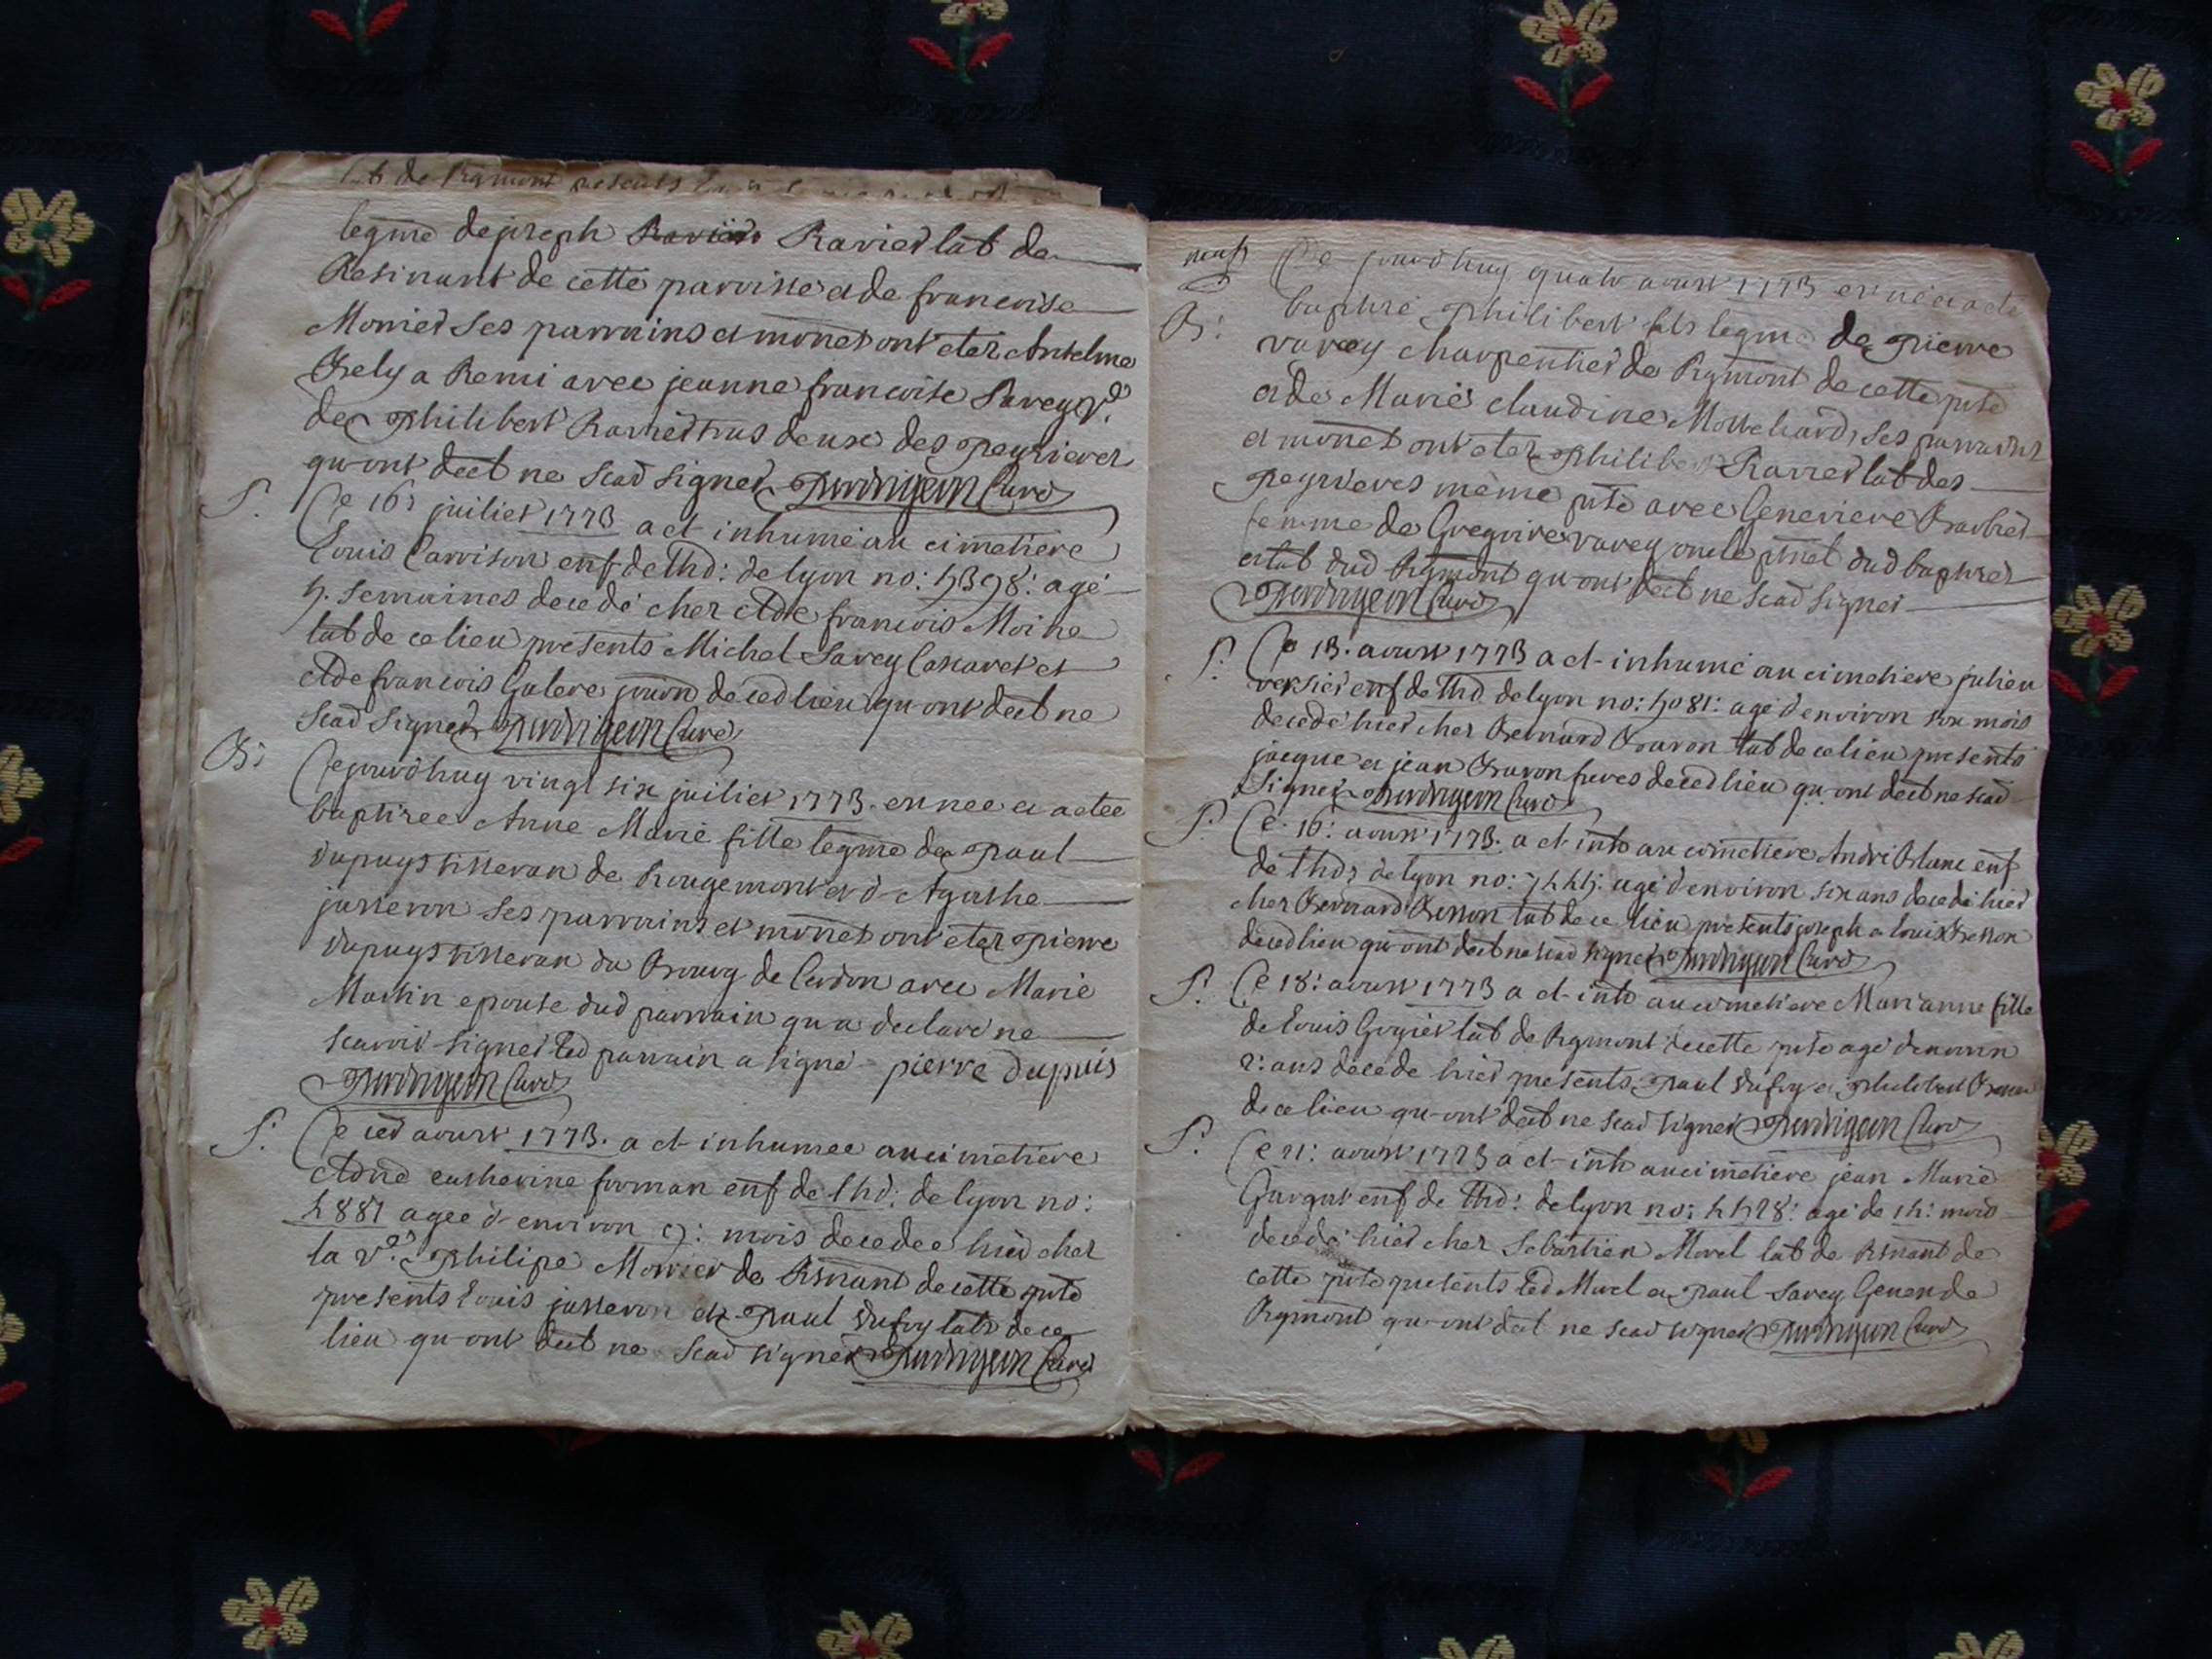 lab de Rgmont presents
legme de joseph Ravier lab de
Resinant de cette parroisse et de francoise
Monier ses parrains et monet ont eter Anthelme
Bely a Remi avec jeanne francoise Savey vd.
de philibert Ravier tous deux des peyrieres
qu-ont decl ne scad signer
S. Ce 16: juiliet 1773 a et-inhumé au cimetiere
Louis Carrison enf de lhd: de lyon no: agé
4. semaines decedé cher Ade francois Moine
lab de ce lieu presents Michel Savey et
Ade francois Galere de ced lieu qu-ont decl ne
scad signer Curé
B: Cejourdhuy vingt six juiliet 1773. est nee et a etee
baptizee Anne Marie fille legme de paul
dupuys tisseran de Rougemont et d-Agathe
jusseron ses parrains et monet ont eter pierre
dupuys tisseran du Bourg de Cerdon avec Marie
Martin epouse dud parrain qu a declaré ne
scavoir signer led parrain a signé pierre dupuis
Curé
S: Ce ier aoust 1773. a et-inhumee au cimetiere
Adné catherine forman enf de lhd: de lyon no:
4881 agee d-environ 9: mois decedee hier cher
la ve. philipe Monier de Rsnant de cette psse
presents Louis jusseron et paul dufoy labs de ce
lieu qu-ont decl ne scad signer Curé
Cejourdhuy quatr aoust 1773 est né et a ete
B: baptizé philibert fils legme de pierre
varey charpentier de Rgmont de cette psse
et de Marie claudine ses parrains
et monet ont eter philibert Ravier lab des
peyrieres même psse avec Genevieve Barbier
femme de Gregoire varey oncle dud baptizer
et lab dud Rgmont qu-ont decl ne scad signer
Curé
S: Ce 13. aoust 1773 a et-inhumé au cimetiere julien
versier enf de lhd de lyon no: 4081: agé d environ six mois
decedé hier cher Bernard Bavon lab de ce lieu presents
jacque et jean Bavon freres de ced lieu qu-ont decl ne scad
signer Curé
S: Ce 16: aoust 1773. a et inh au cimetiere André Blanc enf
de lhd: de lyon no: agé d environ six ans decedé hier
cher Bernard Besson lab de ce lieu presents joseph et louis Besson
de ced lieu qu-ont decl ne scad signer Curé
S: Ce 18: aoust 1773 a et-inh au cimetiere Marianne fille
de Louis lab de Rgmont de cette psse agé denviron
2: ans decede hier presents paul dufoy et philibert
de ce lieu qu-ont decl ne scad signer Curé
S: Ce 21: aoust 1773 a et-inh au cimetiere jean Marie
enf de lhd: de lyon no: agé de 14: mois
decedé hier cher Sebastien Morel lab de Rsnant de
cette psse presents led Morel et paul Savey de
Rgmont qu-ont decl ne scad signer Curé